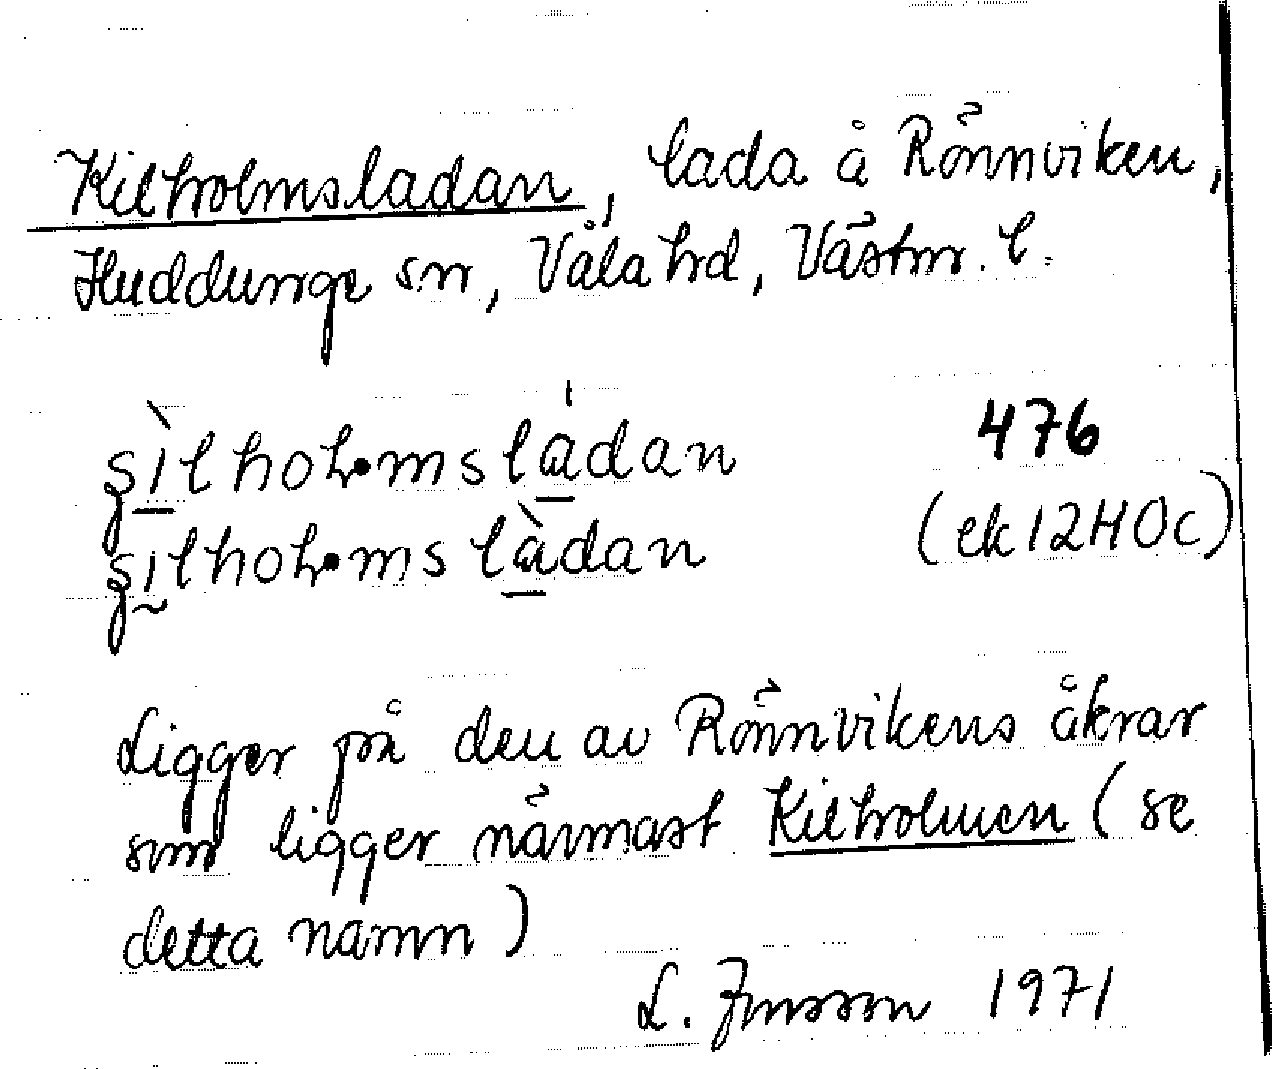 Kilholmsladan, lada å Rönnviken,
Huddunge sn, Våla hd, Västm. l.
476
(ek 12H0c)
Ligger på den av Rönnvikens åkrar
som ligger närmast Kilholmen (se
detta namn)
L. Jonsson 1971